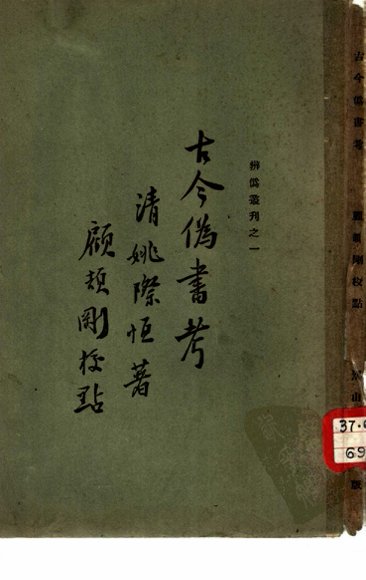 辨偽叢刊之一
古今偽書考
清姚際恒著
顧頡剛校點
古今偽書考
顧頡剛校點
37.6
69